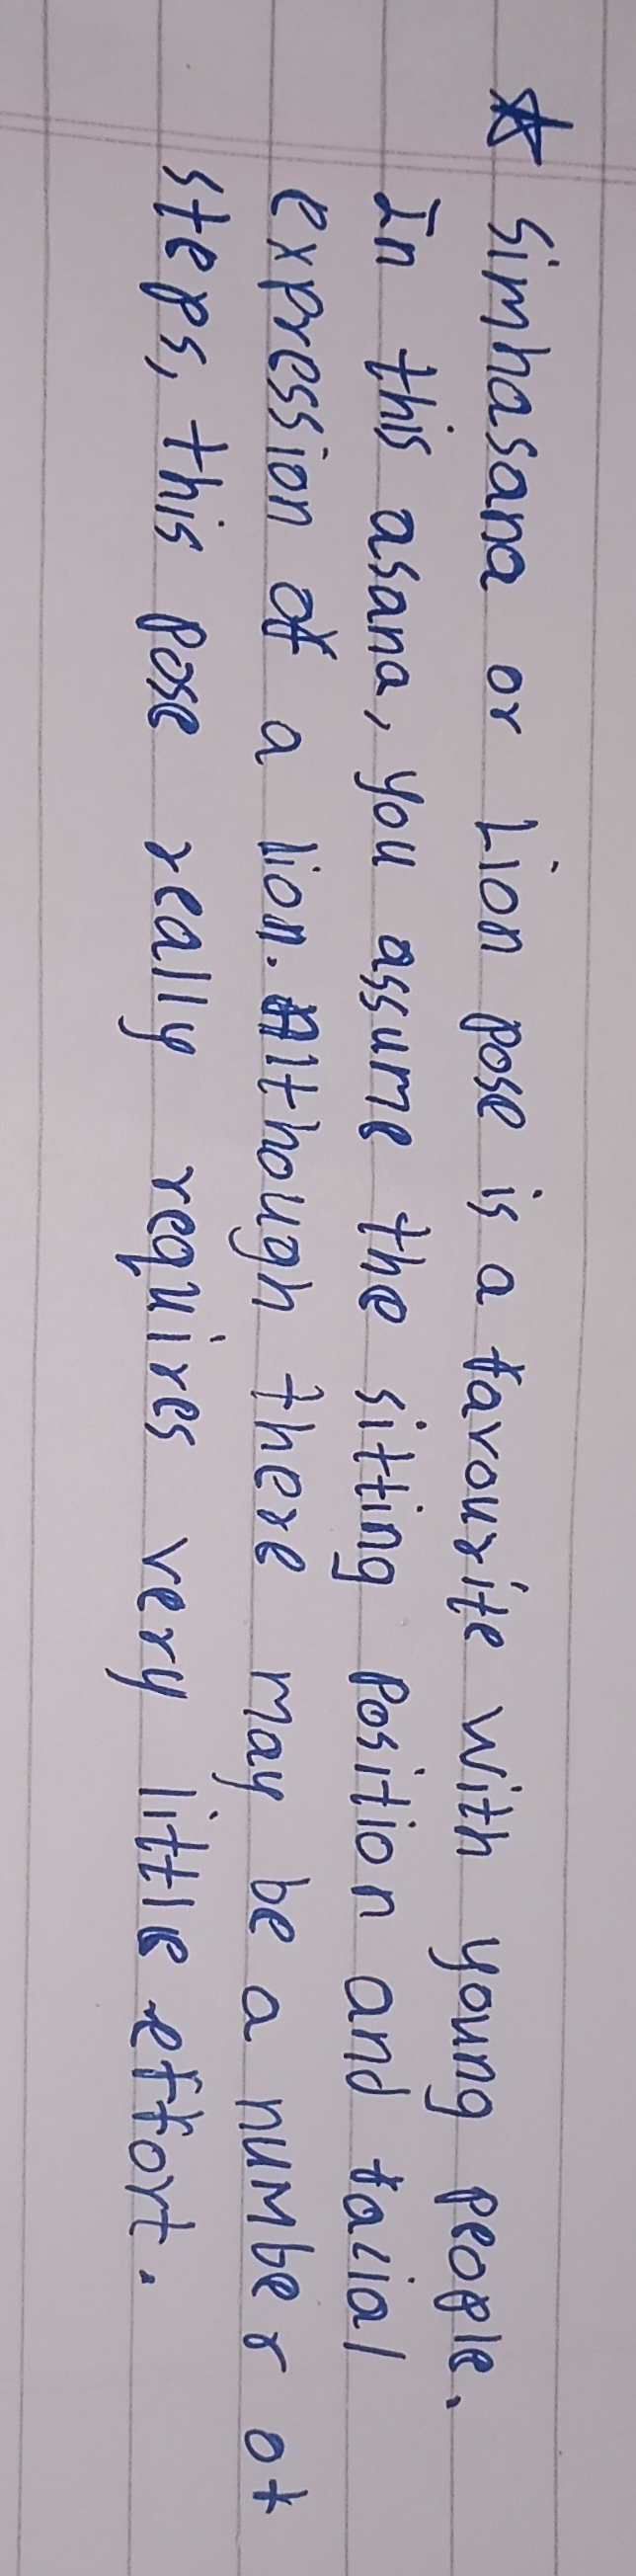 ☆ Simhasana or Lion pose is a favourite with young people.
In this asana, you assume the sitting position and facial
expression of a lion. Although there may be a number of
steps, this pose really requires very little effort.